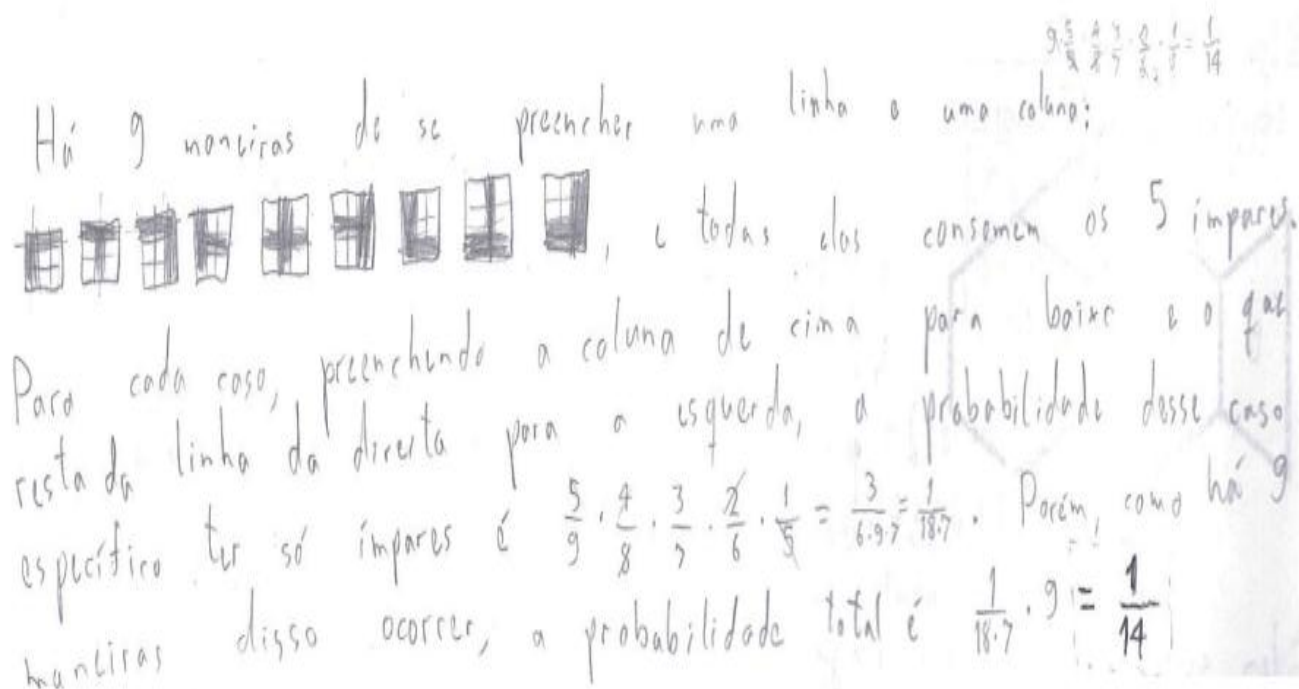 9·5/9·4/8·3/7·2/6·1/5 = 1/14
Há 9 maneiras de se preencher uma linha e uma coluna:
, e todas elas consomem os 5 ímpares.
Para cada caso, preenchendo a coluna de cima para baixo e o que
resta da linha da direita para a esquerda, a probabilidade desse caso
específico ter só ímpares é 5/9 · 4/8 · 3/7 · 2/6 · 1/5 = 3/(6·9·7) = 1/(18·7). Porém, como há 9
maneiras disso ocorrer, a probabilidade total é 1/(18·7) · 9 = 1/14